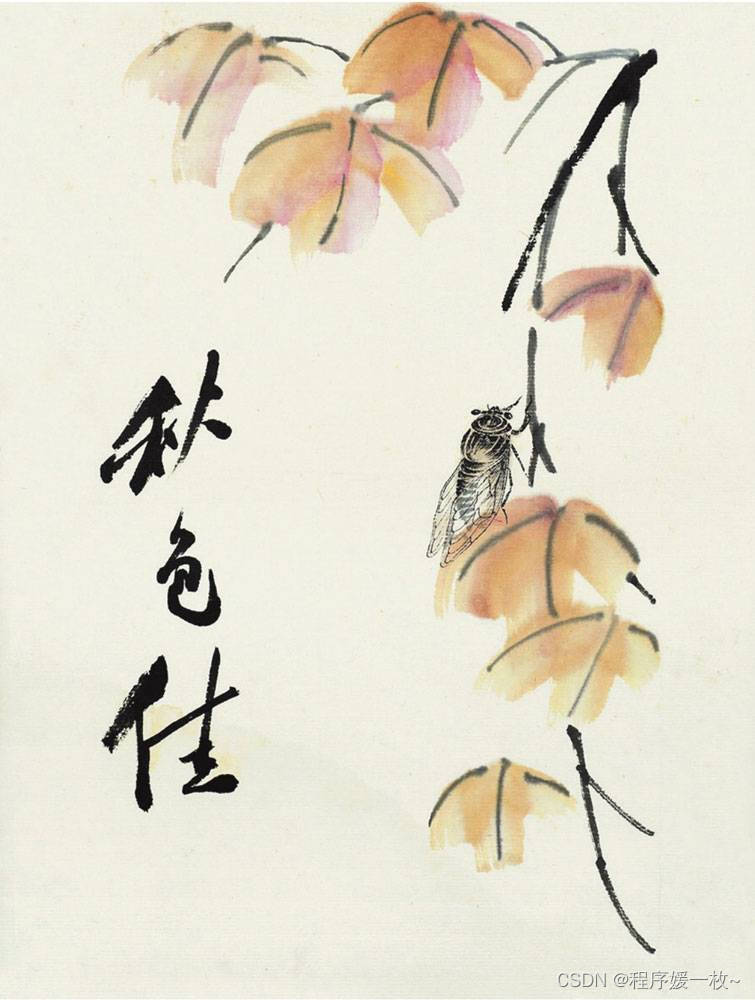 秋色佳
CSDN @程序媛一枚~